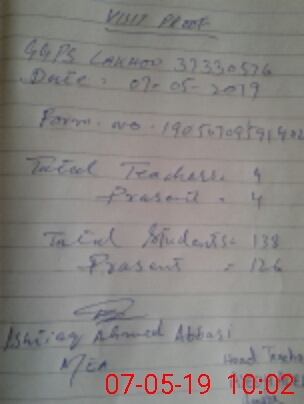 VISIT PROOF
GGPS LAKHOO 37330576
Date: 07-05-2019
Form. no.
Total Teachers. 4
Prasent - 4
Total Students = 138
Prasent = 126
Ishtiaq Ahmed Abbasi
MEA
Head Teache
07-05-19 10:02